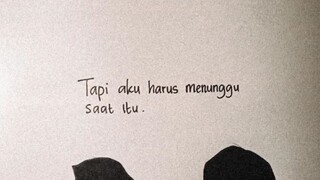 Tapi aku harus menunggu
saat itu.